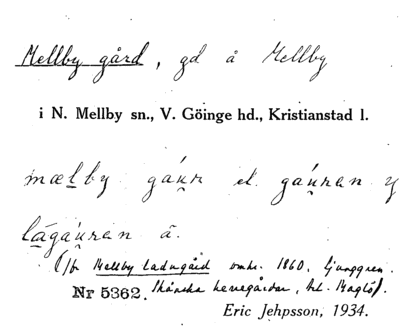 Mellby gård, gd å Mellby
i N. Mellby sn., V. Göinge hd., Kristianstad l.
mælby gáu̯r el. gáu̯ren y
lāgáu̯ren ā.
Mellby Ladugård omkr. 1860. Ljunggren.
Nr 5362. Skånska herregårdar, hl. Maglö.
Eric Jehpsson, 1934.